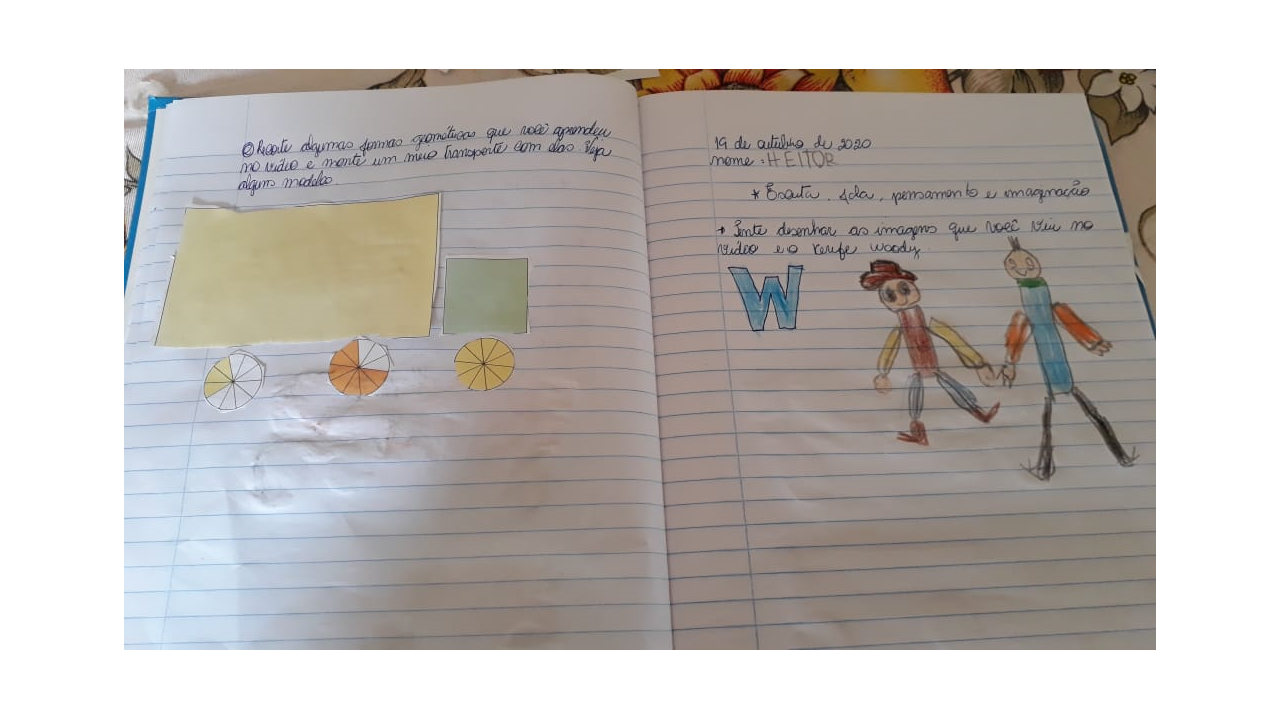 ② Recorte algumas formas geométricas que você aprendeu
no vídeo e monte um meio transporte com elas. Veja
alguns modelos.
19 de outubro de 2020
nome: HEITOR
* Escuta, fala, pensamento e imaginação
→ Tente desenhar as imagens que você viu no
vídeo e o xerife woody.
W